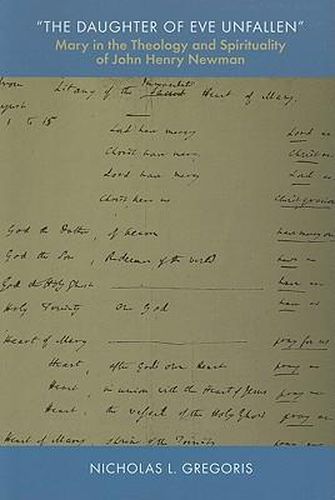 "THE DAUGHTER OF EVE UNFALLEN"
Mary in the Theology and Spirituality
of John Henry Newman
Immaculate
Litany of the Sacred Heart of Mary.
1 to 15
Lord have mercy Lord
Christ have mercy Christ
Lord have mercy Lord
Christ hear us Christ graciou
God the Father, of heaven have mercy on
God the Son, Redeemer of the world have
God the Holy Ghost have
Holy Trinity One God have
Heart of Mary pray for us
Heart, after God's own Heart pray
Heart, in union with the Heart of Jesus pray
Heart, the vessel of the Holy Ghost pray
Heart of Mary shrine of the Trinity
NICHOLAS L. GREGORIS